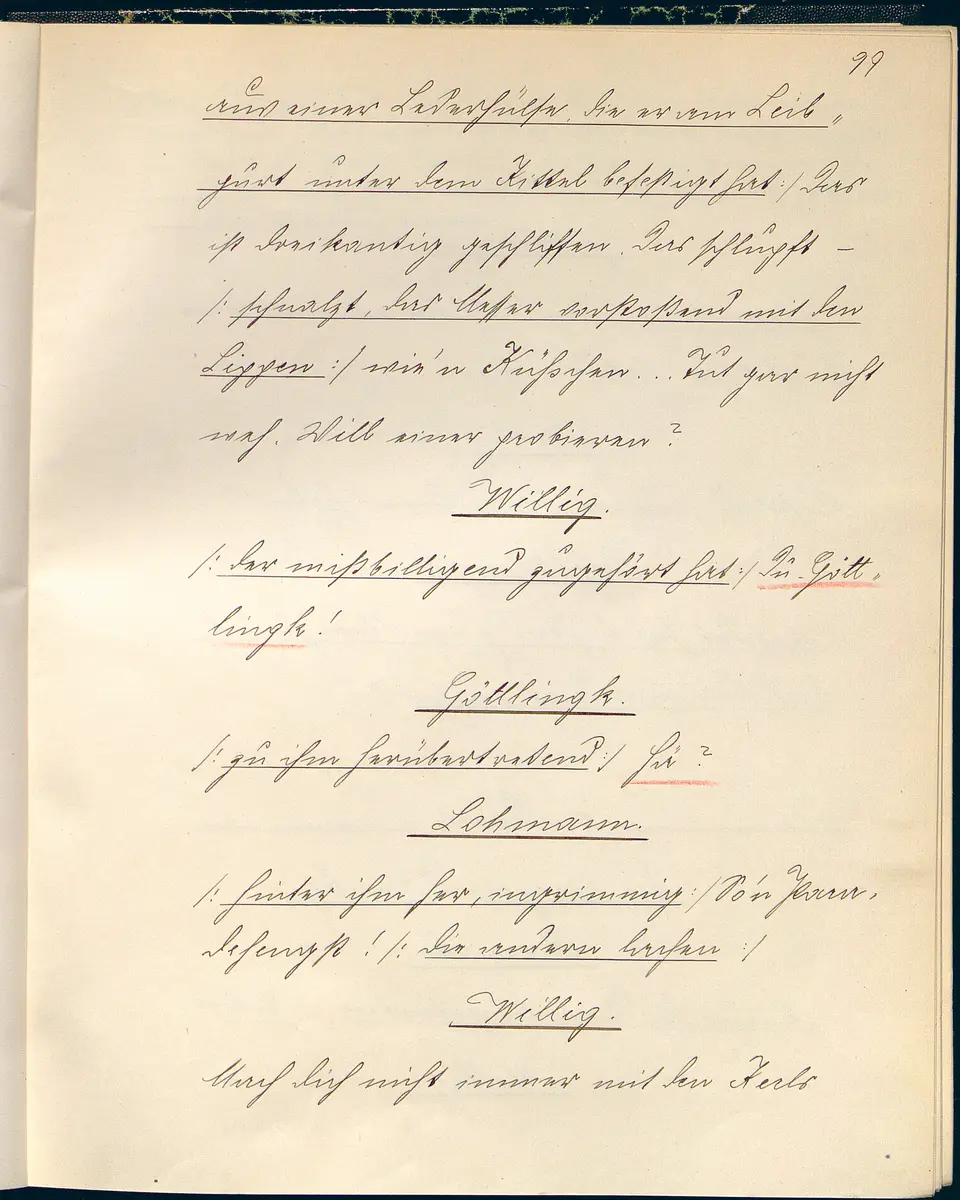 99
aus einer Lederhülse, die er am Leib„
gurt unter dem Kittel befestigt hat :/ Das
ist dreikantig geschliffen. Das schlupft –
/: schnalzt, das Messer vorstoßend mit den
Lippen :/ wie'n Küßchen... Tut gar nicht
weh. Will einer probieren?
Willig.
/: der mißbilligend zugehört hat :/ Du Gött„
lingk!
Göttlingk.
/: zu ihm herübertretend :/ Hä?
Lohmann.
/: hinter ihm her, ingrimmig :/ So'n Para„
dehengst! /: die andern lachen :/
Willig.
Mach dich nicht immer mit den Kerls